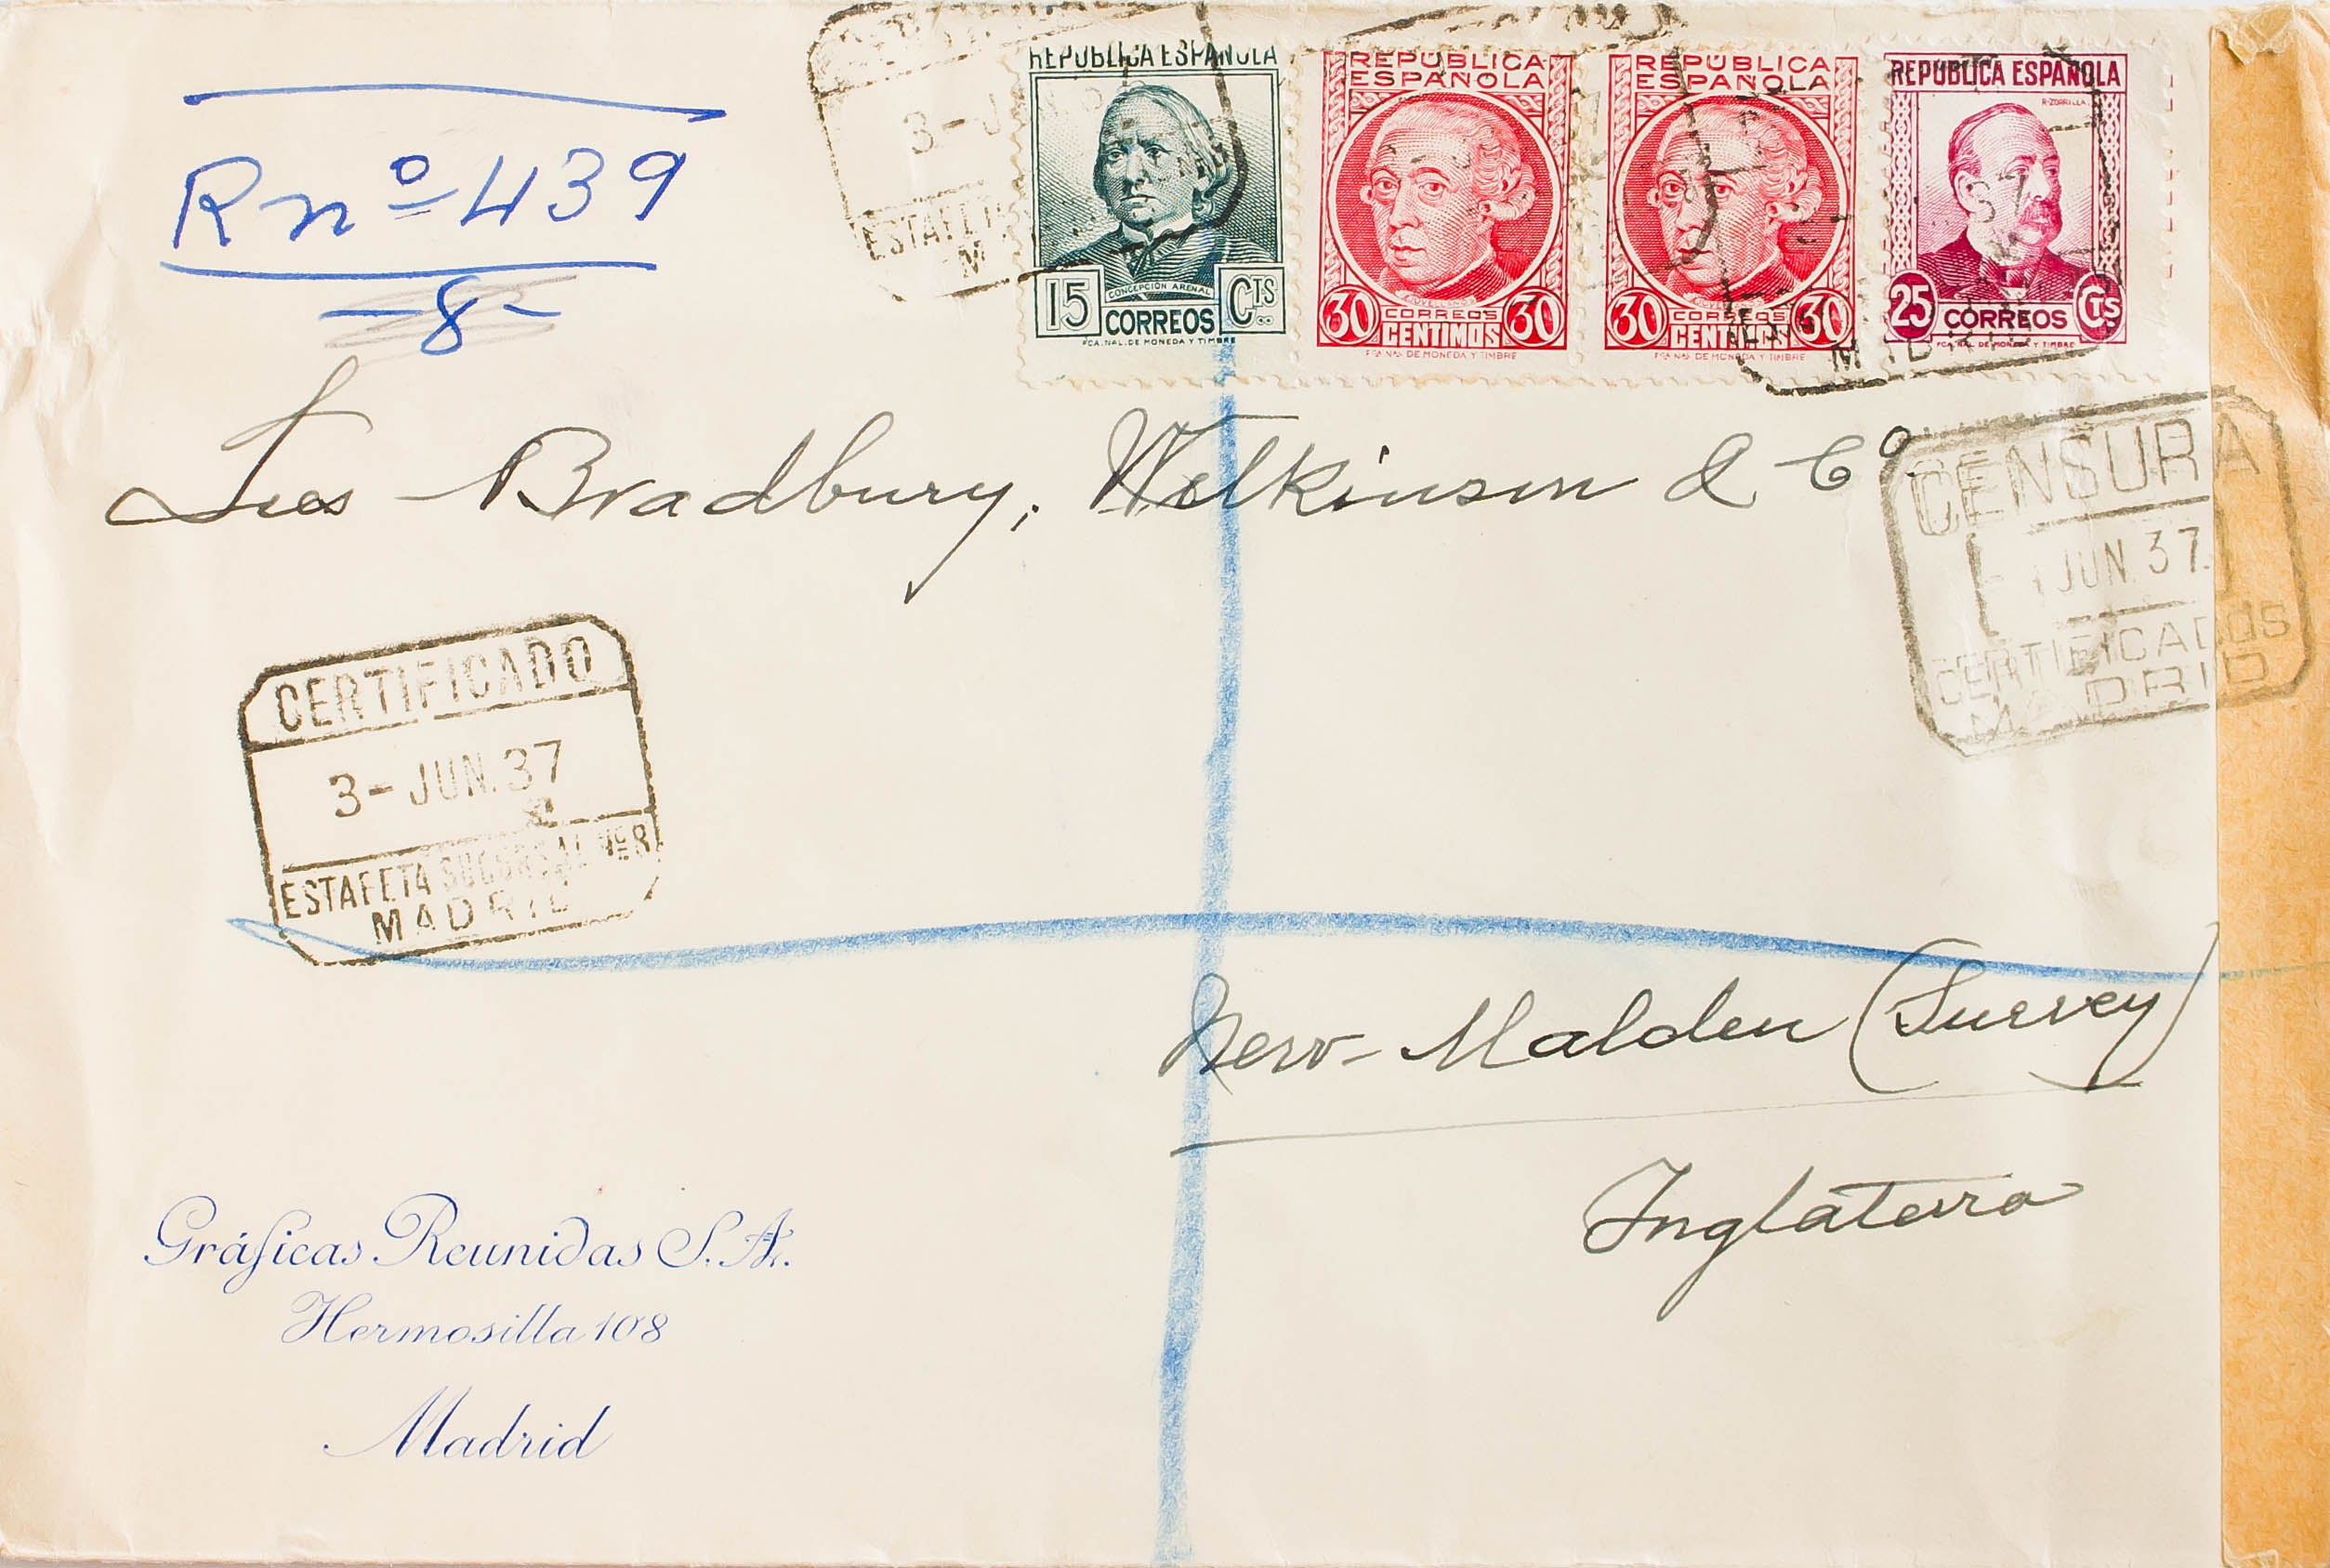 R nº 439
-8-
REPUBLICA ESPAÑOLA
15 CTS
CONCEPCIÓN ARENAL
CORREOS
FCA. NAL. DE MONEDA Y TIMBRE
REPUBLICA
ESPAÑOLA
30 CORREOS 30
CENTIMOS
FCA. NAL DE MONEDA Y TIMBRE
REPUBLICA
ESPAÑOLA
30 CORREOS 30
CENTIMOS
FCA. NAL DE MONEDA Y TIMBRE
REPUBLICA ESPAÑOLA
R-ZORRILLA
25 CORREOS CTS
FCA. NAL. DE MONEDA Y TIMBRE
3-
ESTAFETA
37
MADRID
Bradbury, Wilkinson & Cº
CENSURA
JUN. 37.
CERTIFICADOS
MADRID
CERTIFICADO
3- JUN. 37
ESTAFETA SUCURSAL Nº 8
MADRID
New-Malden (Surrey)
Inglaterra
Gráficas Reunidas S.A.
Hermosilla 108
Madrid